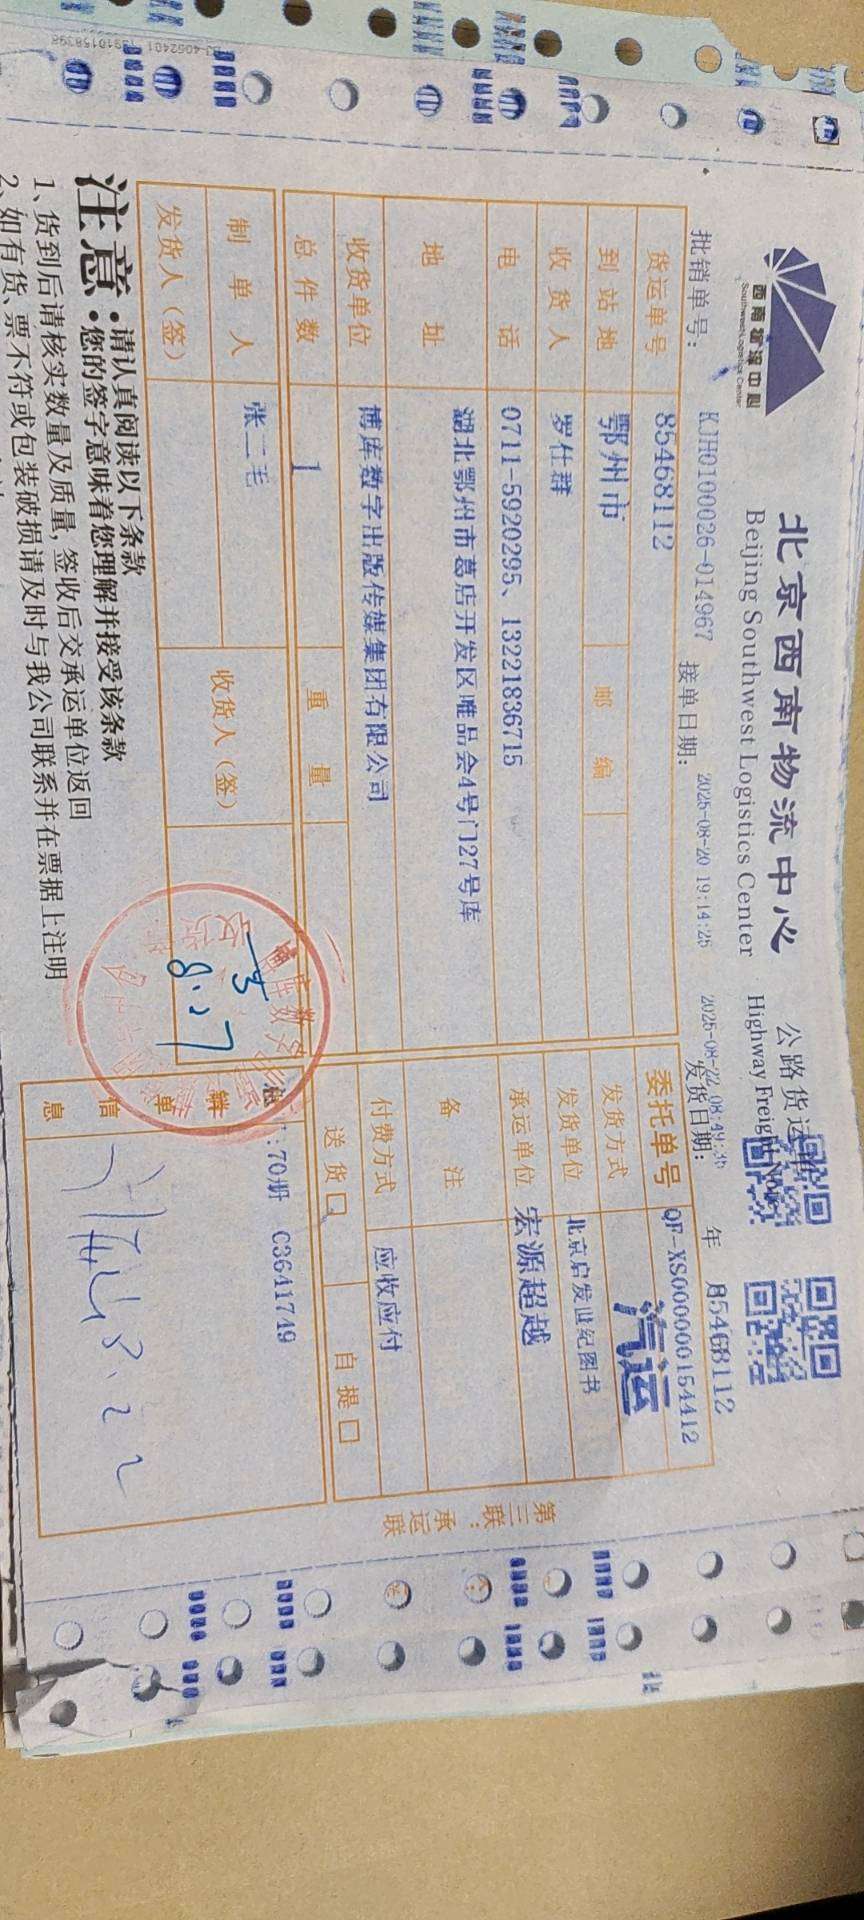 西南物流中心
Southwest Logistics Center
北京西南物流中心
Beijing Southwest Logistics Center
公路货运单
Highway Freight Note
85468112
批销单号: KJH0100026-014967 接单日期: 2025-08-20 19:14:25 2025-08-22 08:49:35 发货日期: 年 月
货运单号 85468112 委托单号 QF-XS000000154412
到站地 鄂州市 邮编 发货方式 汽运
收货人 罗仕群 发货单位 北京启发世纪图书
电话 0711-5920295、13221836715 承运单位 宏源超越
地址 湖北鄂州市葛店开发区唯品会4号门27号库 备注
收货单位 博库数字出版传媒集团有限公司 付费方式 应收应付
总件数 1 重量 送货□ 自提□
制单人 张二毛 收货人(签) 8.27
发货人(签)
:70册 C3641749
信息
8.22
第三联:承运联
注意:请认真阅读以下条款
您的签字意味着您理解并接受该条款
1、货到后请核实数量及质量,签收后交承运单位返回
2、如有货、票不符或包装破损请及时与我公司联系并在票据上注明